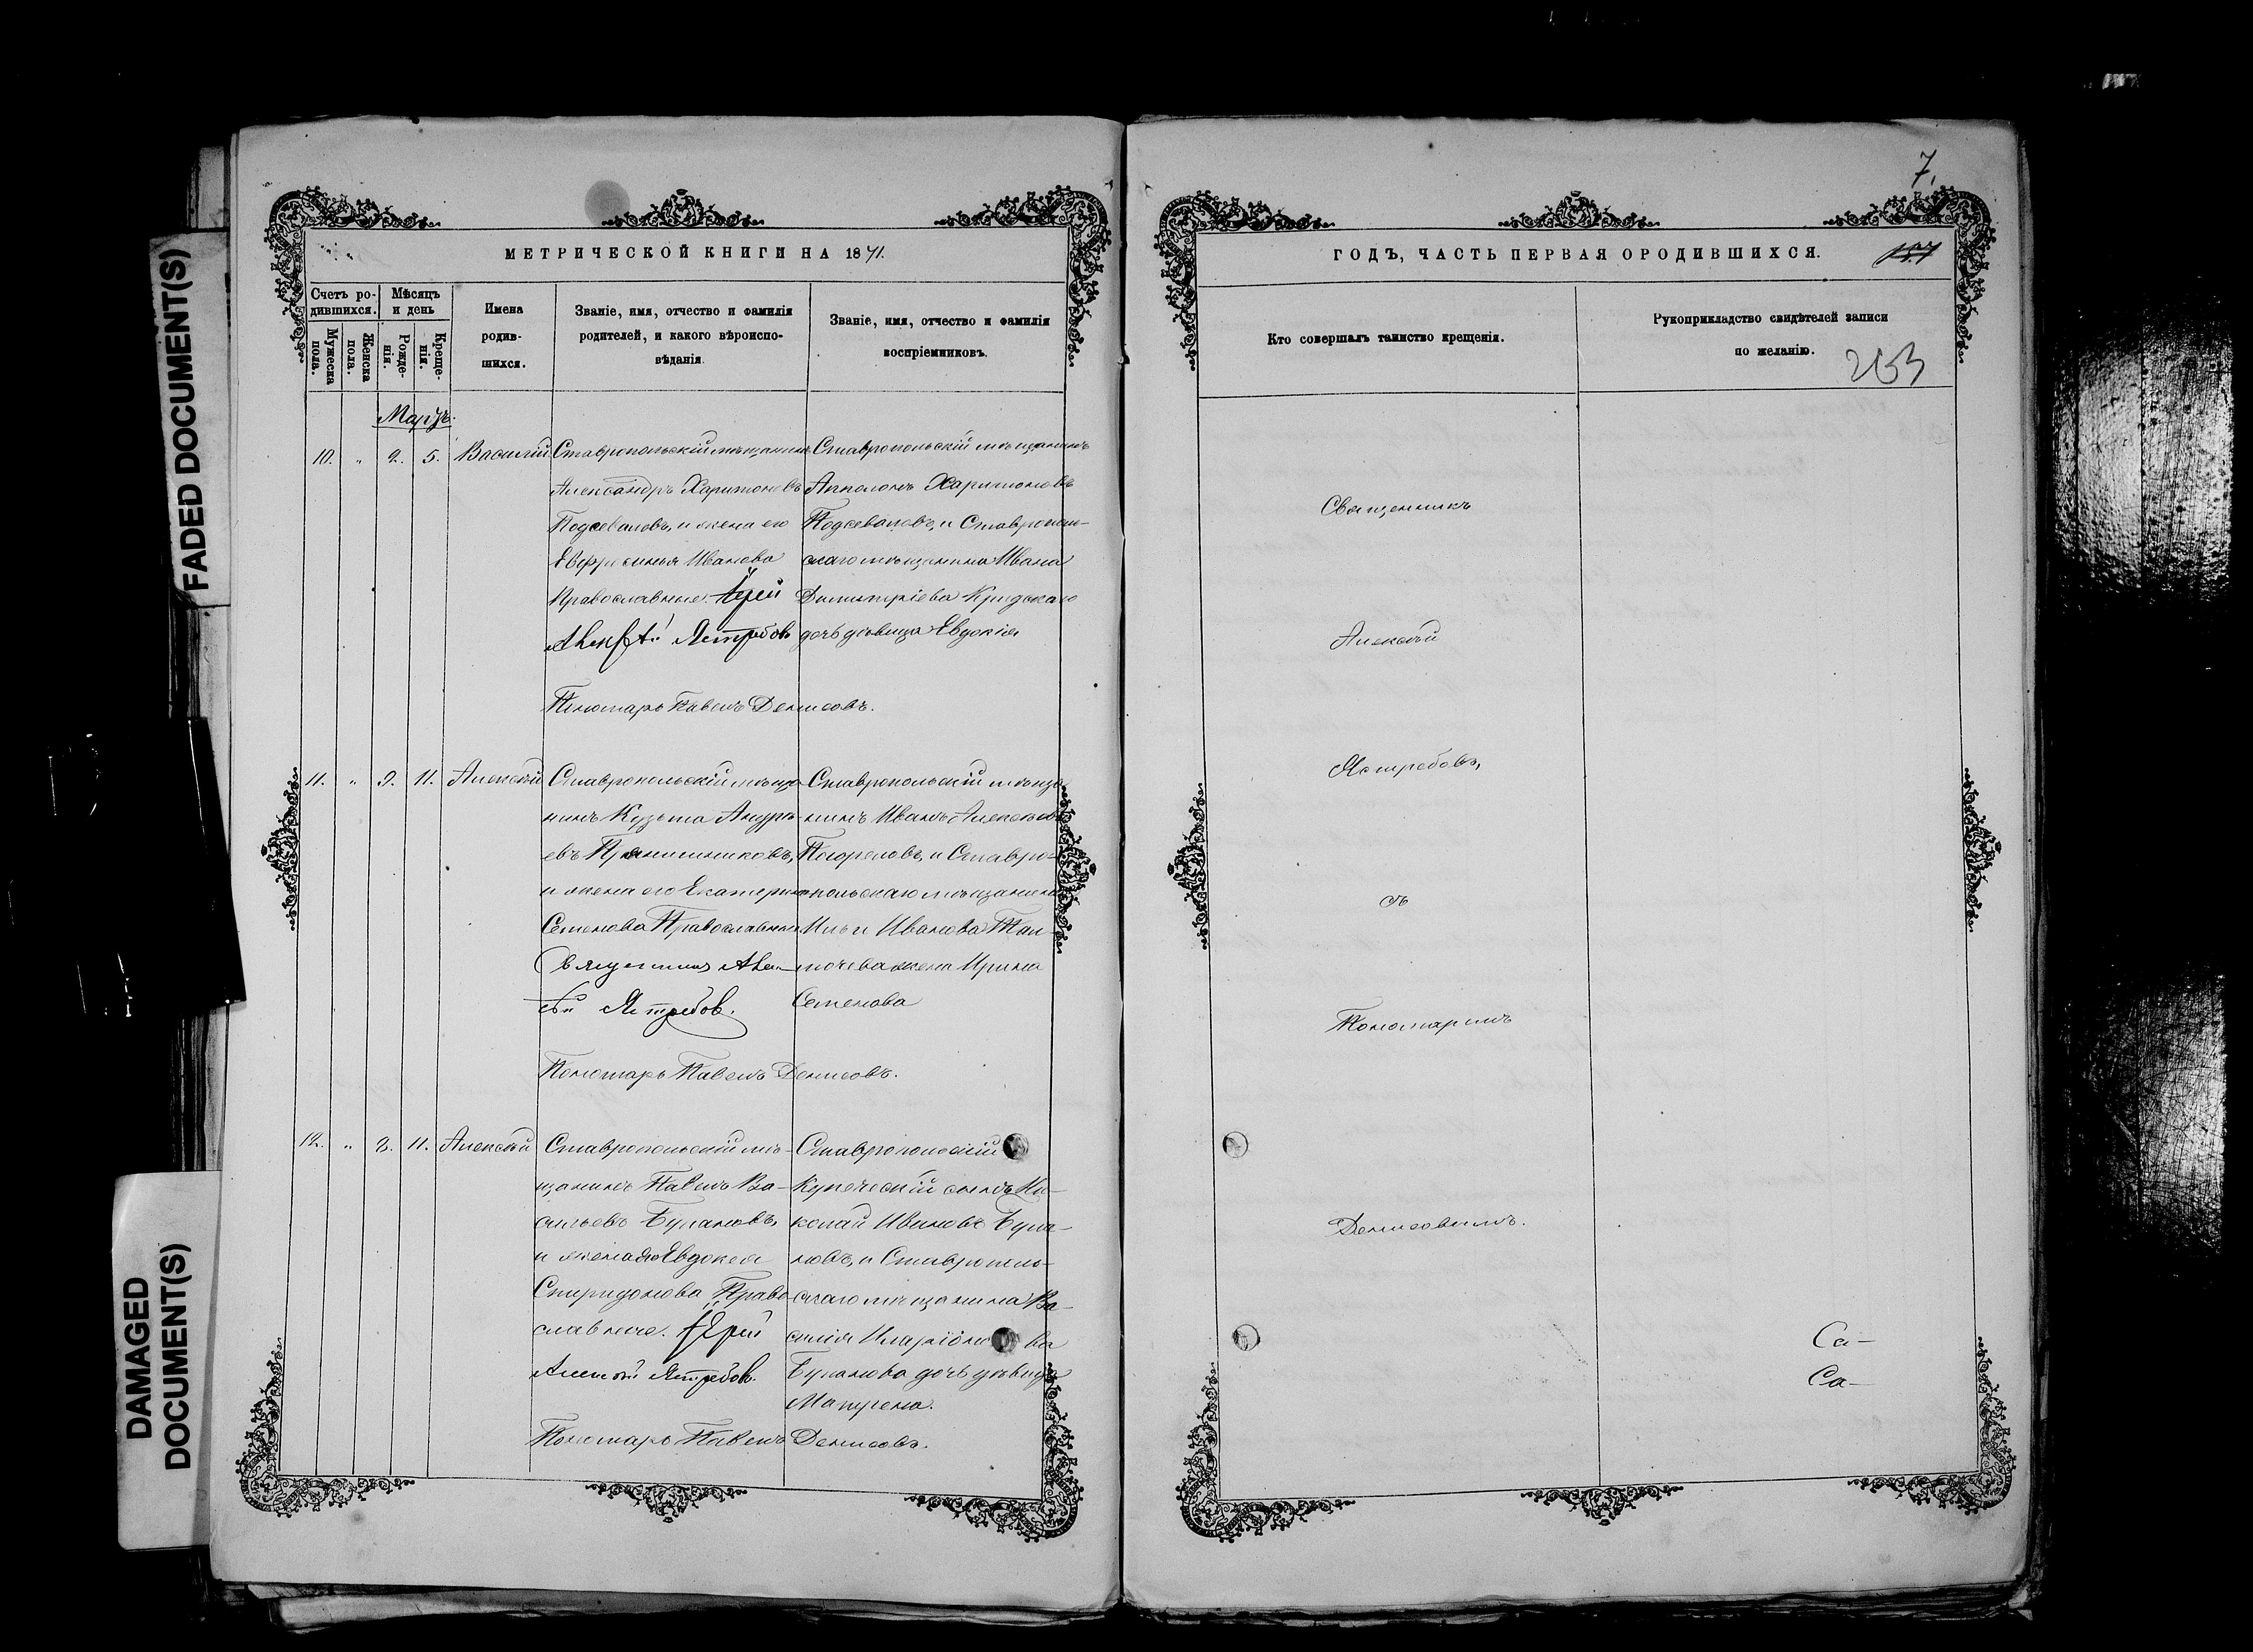 FADED DOCUMENT(S)
DAMAGED
DOCUMENT(S)
МЕТРИЧЕСКОЙ КНИГИ НА 1871.
Счетъ ро-
дившихся.
Мужеска
пола.
Женска
пола.
Мѣсяцъ
и день
Рожде-
нія.
Креще-
нія.
Имена
родив-
шихся.
Званіе, имя, отчество и фамилія
родителей, и какого вѣроиспо-
вѣданія.
Званіе, имя, отчество и фамилія
воспріемниковъ.
Мартъ.
10. " 2. 5. Василій
Ставропольскій мѣщанинъ
Александръ Харитоновъ
Подсеваловъ, и жена его
Евфросинья Иванова
Православные. Іерей
Алексѣй Ястребовъ
Ставропольскій мѣщанинъ
Апполонъ Харитоновъ
Подсеваловъ, и Ставрополь-
скаго мѣщанина Ивана
Димитріева
дочь дѣвица Евдокія
Пономарь Павелъ Денисовъ.
11. " 9. 11. Алексѣй
Ставропольскій мѣща-
нинъ Кузьма Андре-
евъ Прянишниковъ,
и жена его Екатерина
Семенова Православные
Священникъ Алек-
сѣй Ястребов.
Ставропольскій мѣща-
нинъ Иванъ Алексѣевъ
Погореловъ, и Ставро-
польскаго мѣщанина
Ильи Иванова
жена Ирина
Семенова
Пономарь Павелъ Денисовъ.
12. " 8. 11. Алексѣй
Ставропольскій мѣ-
щанинъ Павелъ Ва-
сильевъ Булановъ,
и жена его Евдокия
Спиридонова Право-
славные. Іерей
Алексѣй Ястребов.
Ставропольскій
Купеческій сынъ Ни-
колай Ивановъ Була-
новъ, и Ставрополь-
скаго мѣщанина Ва-
силія Иларіоно ва
Буланова дочь дѣвица
Матрена.
Пономарь Павелъ Денисовъ.
7.
ГОДЪ, ЧАСТЬ ПЕРВАЯ О РОДИВШИХСЯ.
157
Кто совершалъ таинство крещенія.
Рукоприкладство свидѣтелей записи
по желанію.
263
Священникъ
Алексѣй
Ястребовъ,
съ
Пономаремъ
Денисовымъ.
Са-
Са-